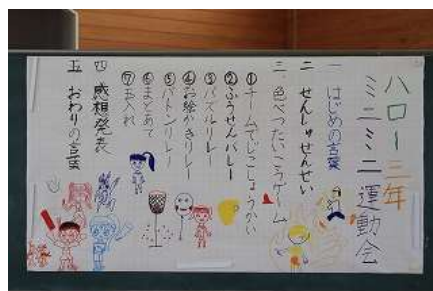 ハロー三年
ミニミニ運動会
一 はじめの言葉
二 せんしゅせんせい
三 色べつたいこうゲーム
①チームでじこしょうかい
②ふうせんバレー
③パズルリレー
④お絵かきリレー
⑤バトンリレー
⑥まとあて
⑦玉入れ
四 感想発表
五 おわりの言葉